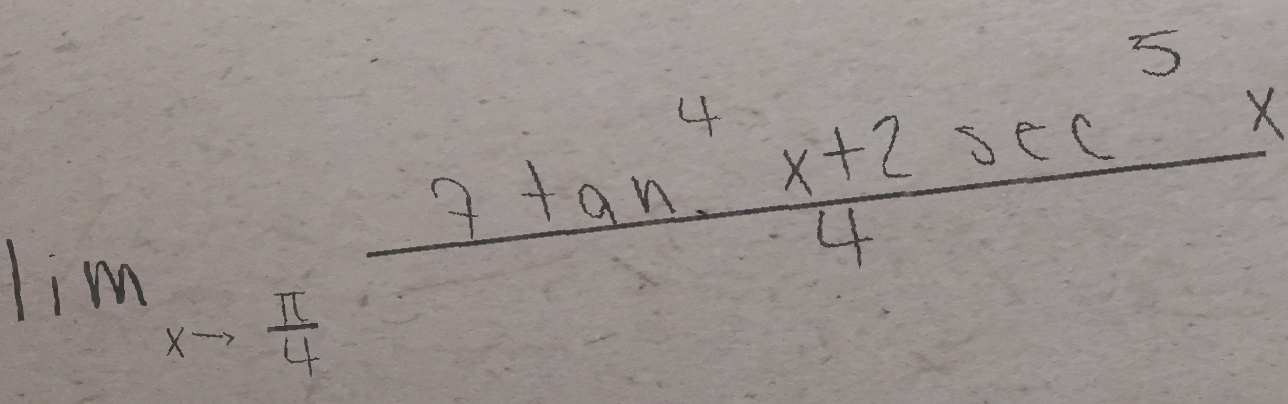 lim x→π/4 (7 tan^4 x+2 sec^5 x)/4